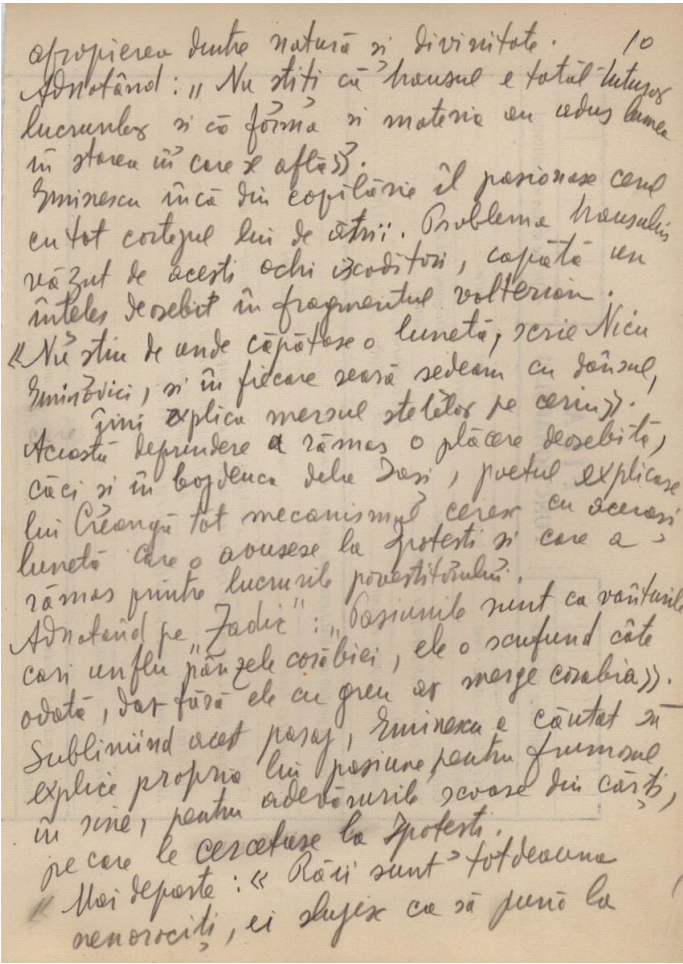 apropierea dintre natură si divinitate. 10
Adnotând: „Nu stiti că haosul e tatăl tuturor
lucrurilor si că forma si materia au adus lumea
în starea în care se află».
Eminescu încă din copilărie îl pasionase cerul
cu tot cortegiul lui de aștrii. Problema haosului
văzut de acesti ochi iscoditori, capătă un
înteles deosebit în fragmentul volterian.
«Nu stiu de unde căpătase o lunetă, scrie Nicu
Eminovici, si în fiecare seară sedeam cu dânsul,
îmi explica mersul stelelor pe ceriu».
Această deprindere a rămas o plăcere deosebită,
căci si în bojdeuca dela Iasi, poetul explicase
lui Creangă tot mecanismul ceresc cu aceeasi
lunetă care o avusese la Ipotesti si care a
rămas printre lucrurile povestitorului.
Adnotând pe „Zadic”: „Pasiunile sunt ca vânturile
cari unflu pânzele corăbiei, ele o scufund câte
odată, dar fără ele cu greu ar merge corabia».
Subliniind acest pasaj, Eminescu a căutat să
explice propria lui pasiune pentru frumosul
în sine, pentru adevărurile scoase din cărți,
pe care le cercetase la Ipotesti.
Mai departe: « Răii sunt totdeauna
nenorociți, ei slujesc ca să pună la